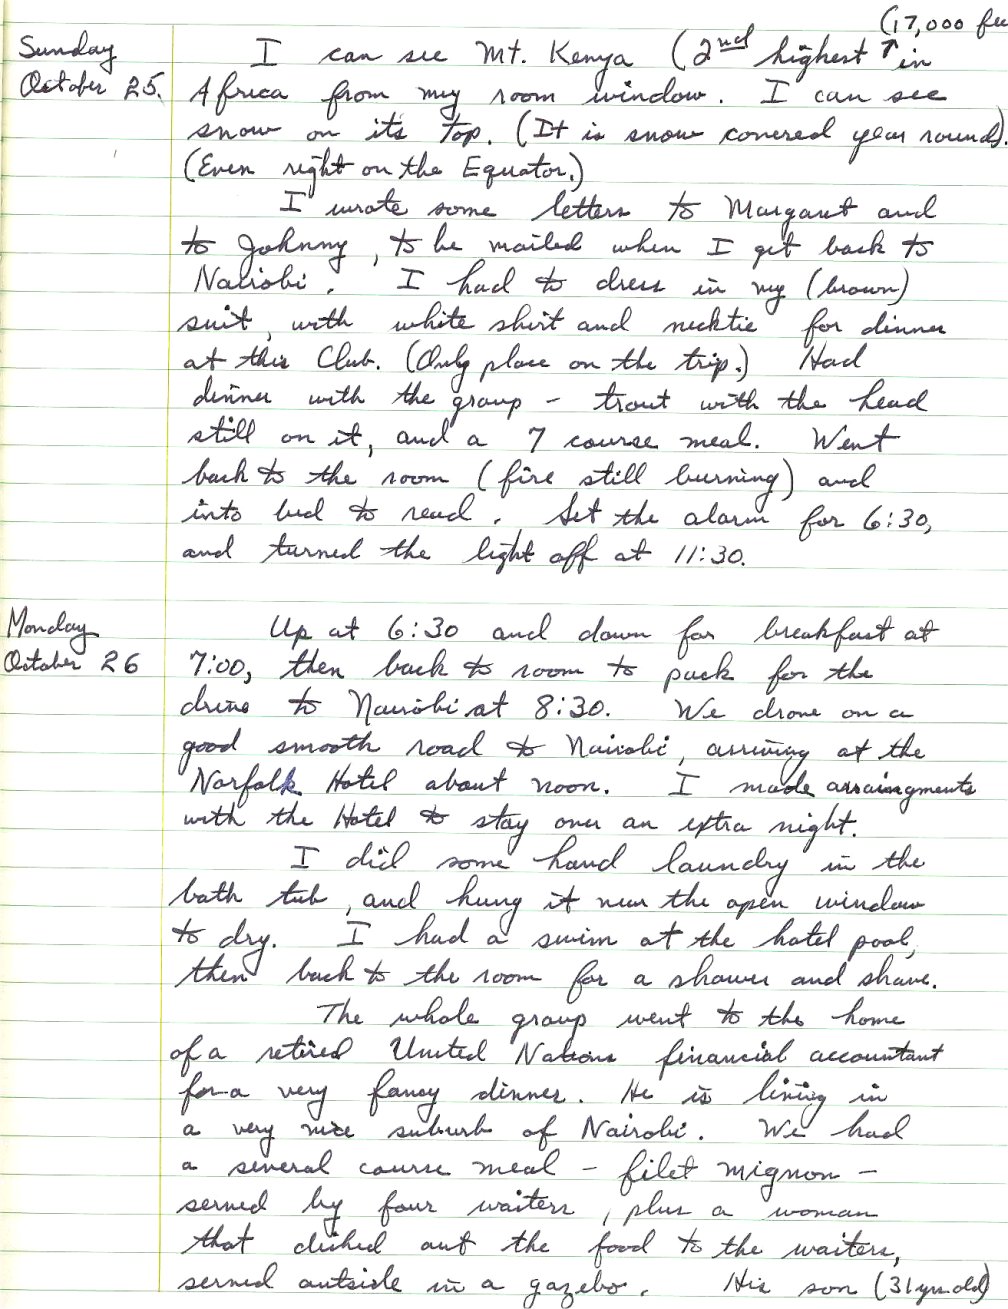 (17,000 fee
Sunday I can see Mt. Kenya (2nd highest ↑ in
October 25. Africa from my room window. I can see
snow on its top. (It is snow covered year round).
(Even right on the Equator.)
I wrote some letters to Margaret and
to Johnny, to be mailed when I get back to
Nairobi. I had to dress in my (brown)
suit, with white shirt and necktie for dinner
at this Club. (Only place on the trip.) Had
dinner with the group - trout with the head
still on it, and a 7 course meal. Went
back to the room (fire still burning) and
into bed to read. Set the alarm for 6:30,
and turned the light off at 11:30.
Monday Up at 6:30 and down for breakfast at
October 26 7:00, then back to room to pack for the
drive to Nairobi at 8:30. We drove on a
good smooth road to Nairobi, arriving at the
Norfolk Hotel about noon. I made arraingments
with the Hotel to stay over an extra night.
I did some hand laundry in the
bath tub, and hung it near the open window
to dry. I had a swim at the hotel pool,
then back to the room for a shower and shave.
The whole group went to the home
of a retired United Nations financial accountant
for a very fancy dinner. He is living in
a very nice suburb of Nairobi. We had
a several course meal - filet mignon -
served by four waiters, plus a woman
that dished out the food to the waiters,
served outside in a gazebo. His son (31 yrs old)